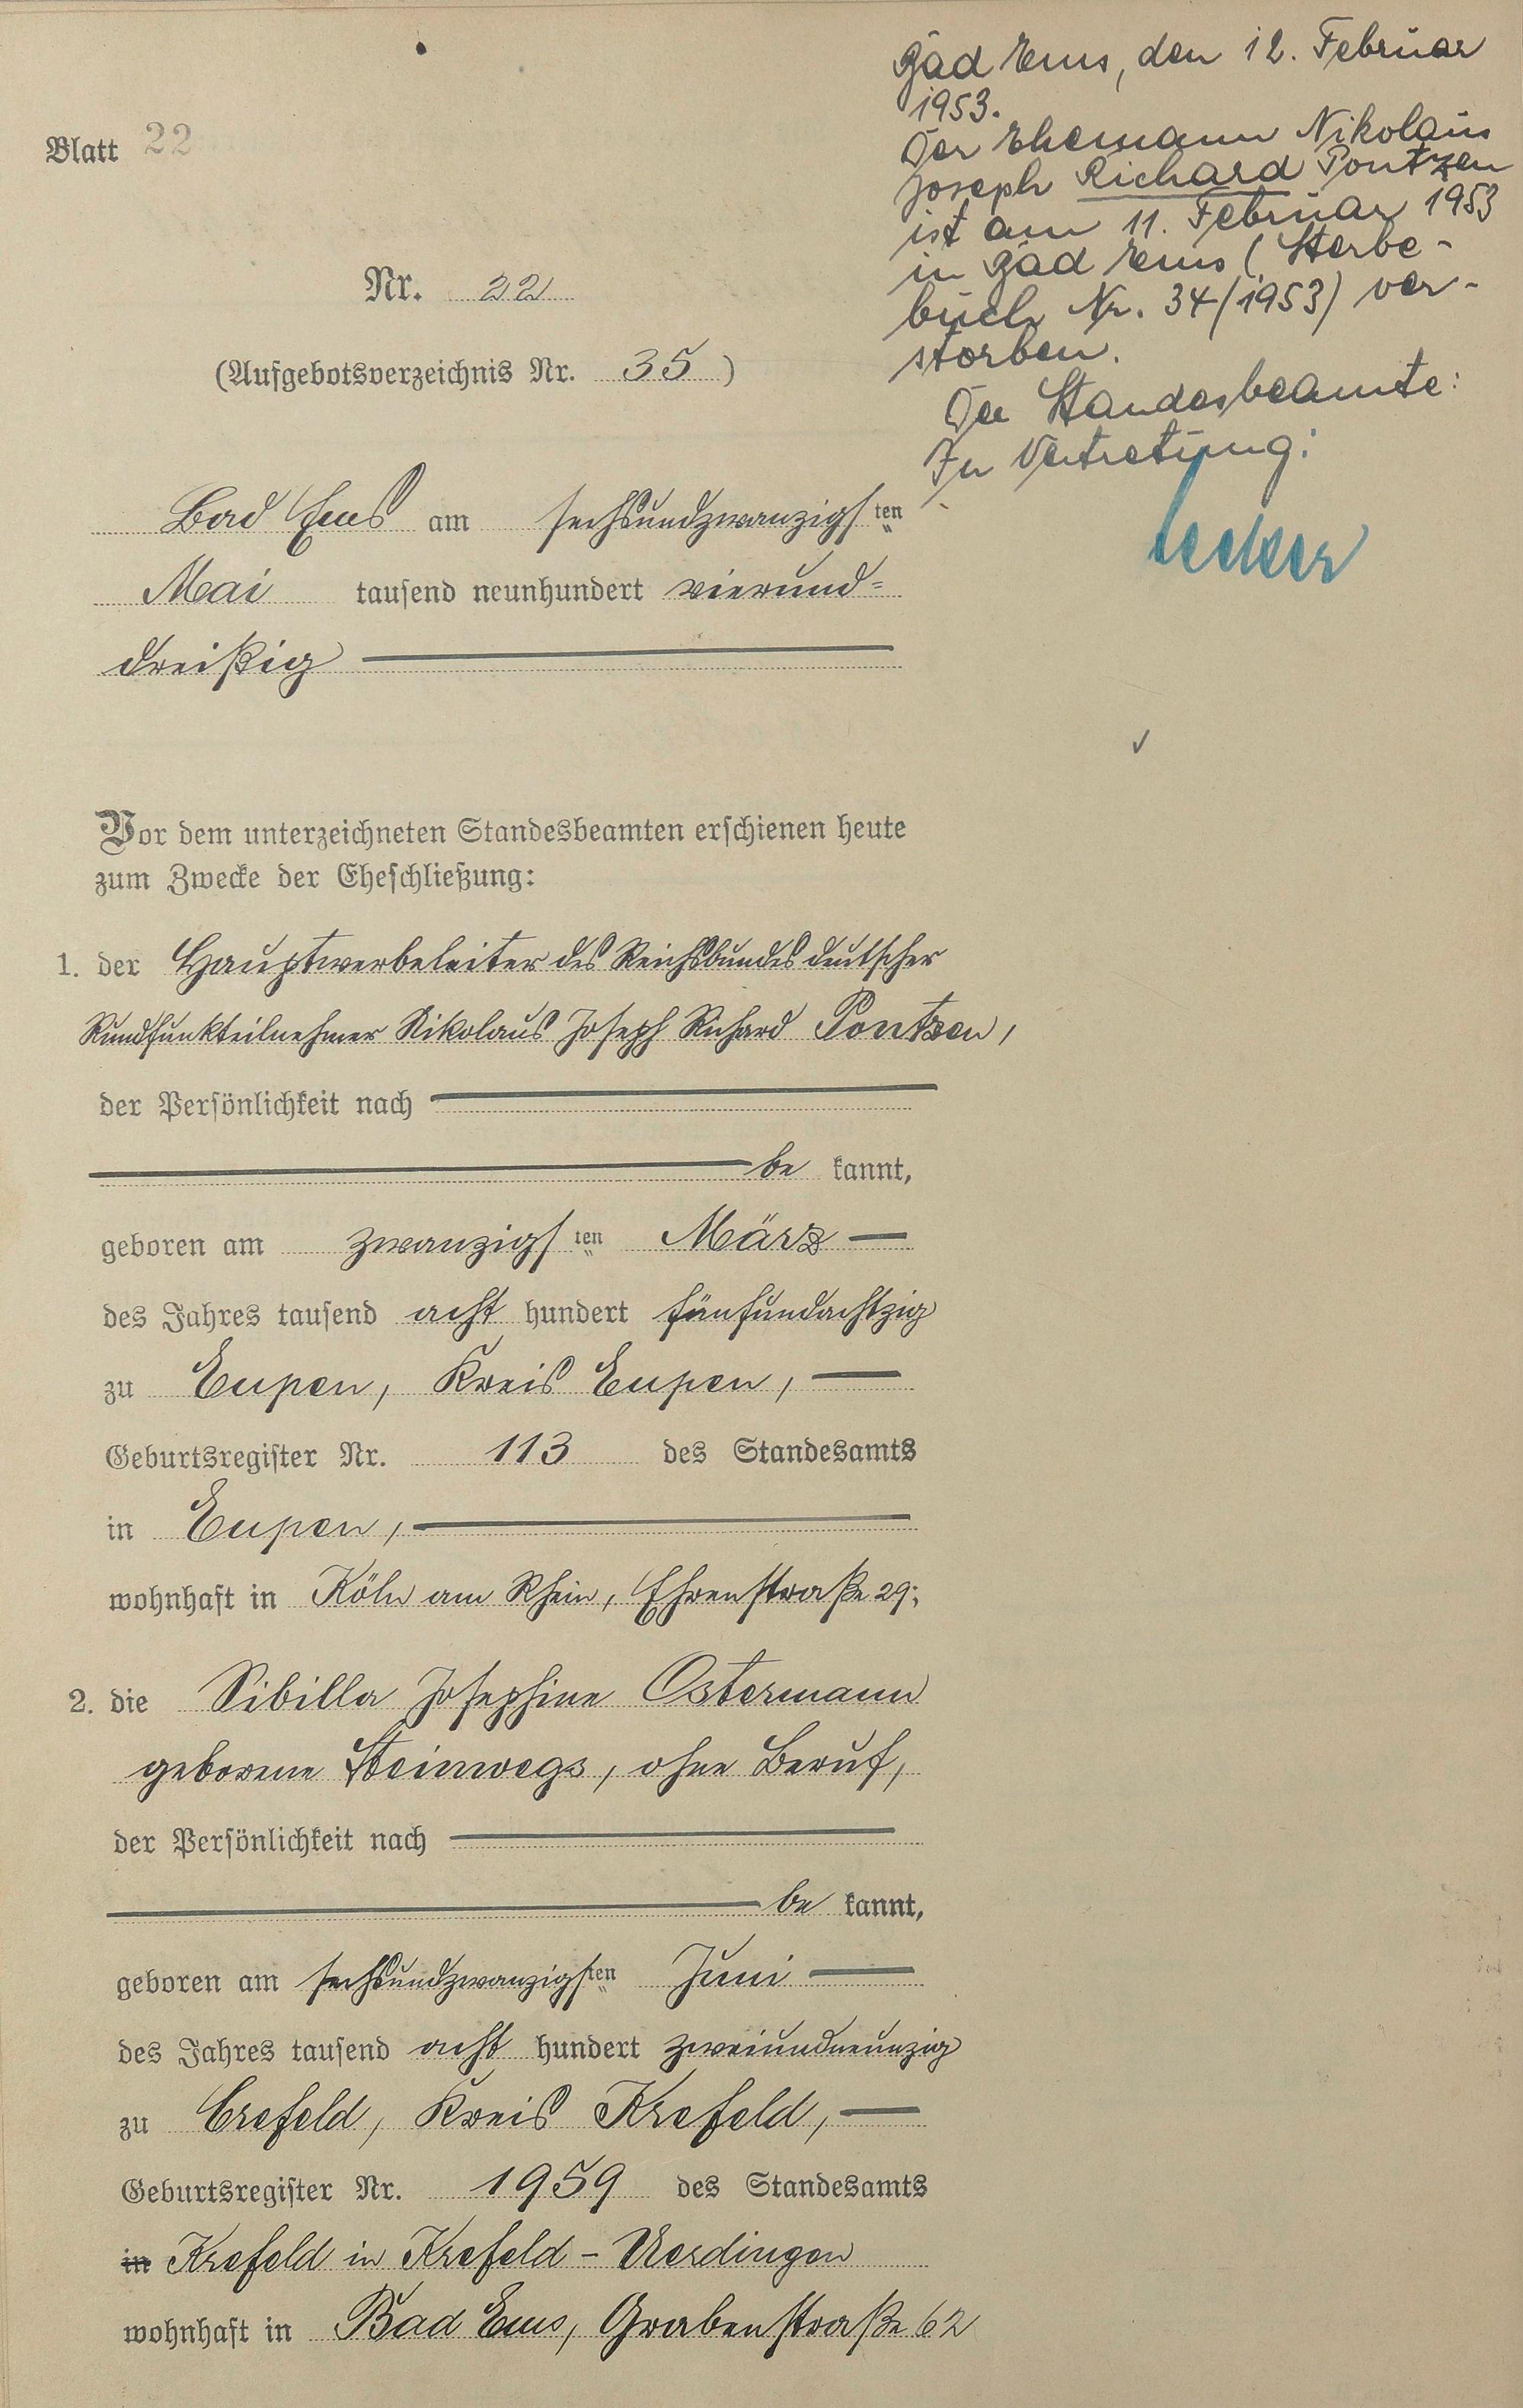 Blatt 22
Nr. 22
(Aufgebotsverzeichnis Nr. 35)
Bad Ems am sechsundzwanzigsten
Mai tausend neunhundert vierund=
dreißig
Bad Ems, den 12. Februar
1953.
Der Ehemann Nikolaus
Joseph Richard Pontzen
ist am 11. Februar 1953
in Bad Ems (Sterbe-
buch Nr. 34/1953) ver-
storben.
Der Standesbeamte:
In Vertretung:
Vor dem unterzeichneten Standesbeamten erschienen heute
zum Zwecke der Eheschließung:
1. der Hauptwerbeleiter des Reichsbundes deutscher
Rundfunkteilnehmer Nikolaus Joseph Richard Pontzen,
der Persönlichkeit nach
be kannt,
geboren am zwanzigsten März
des Jahres tausend acht hundert fünfundachtzig
zu Eupen, Kreis Eupen,
Geburtsregister Nr. 113 des Standesamts
in Eupen,
wohnhaft in Köln am Rhein, Ehrenstraße 29;
2. die Sibilla Josephine Ostermann
geborene Steinwegs, ohne Beruf,
der Persönlichkeit nach
be kannt,
geboren am sechsundzwanzigsten Juni
des Jahres tausend acht hundert zweiundneunzig
zu Crefeld, Kreis Krefeld,
Geburtsregister Nr. 1959 des Standesamts
in Krefeld in Krefeld - Uerdingen
wohnhaft in Bad Ems, Grabenstraße 62